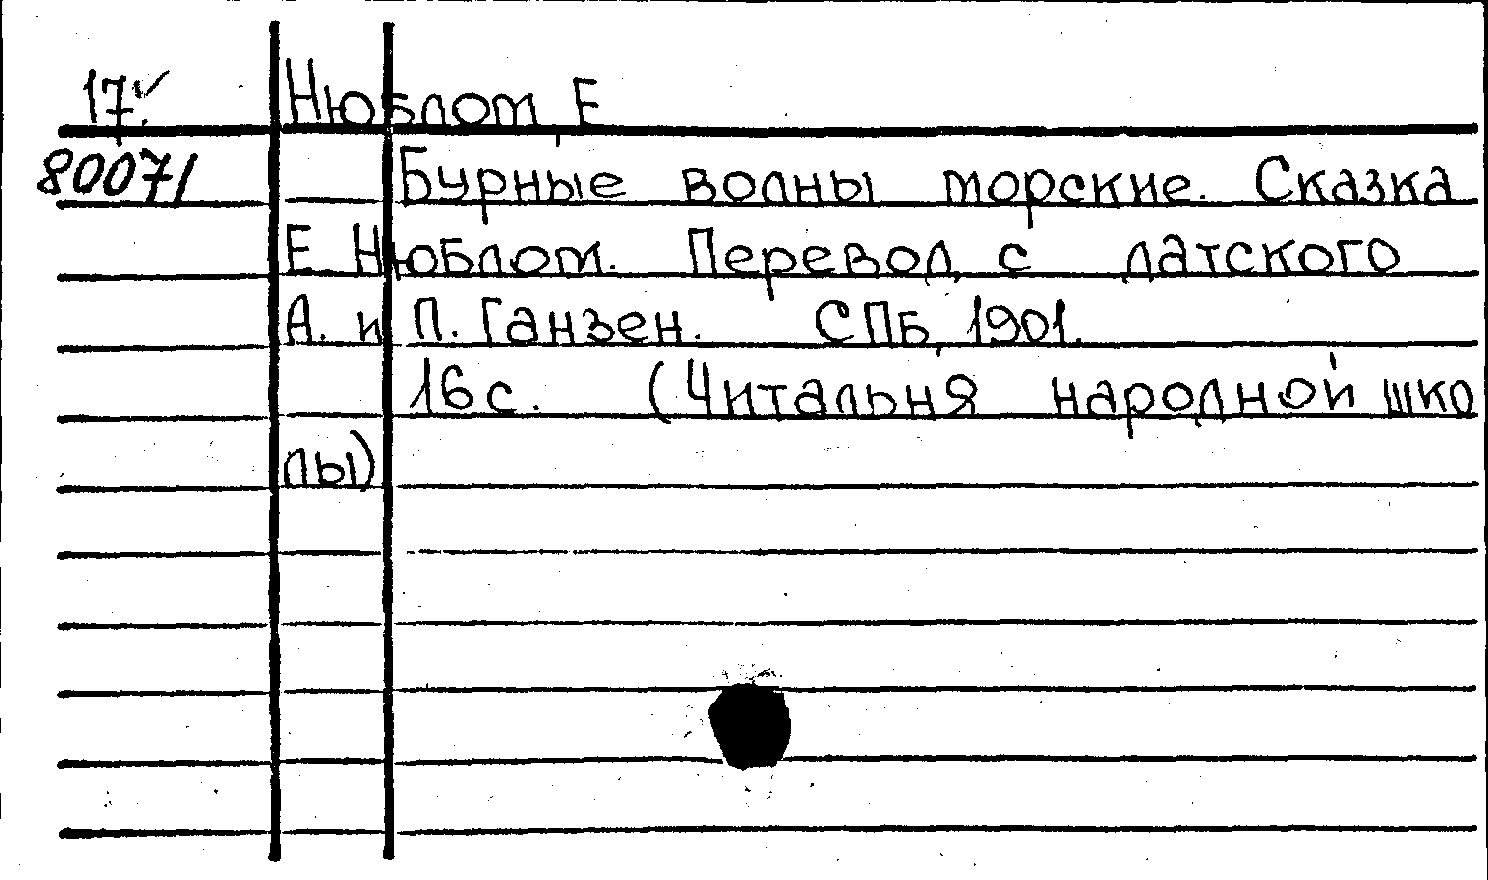 17. Нюблом, Е
80071 Бурные волны морские. Сказка
Е Нюблом. Перевод с датского
А. и П. Ганзен. СПБ, 1901.
16 с. (Читальня народной шко
лы)